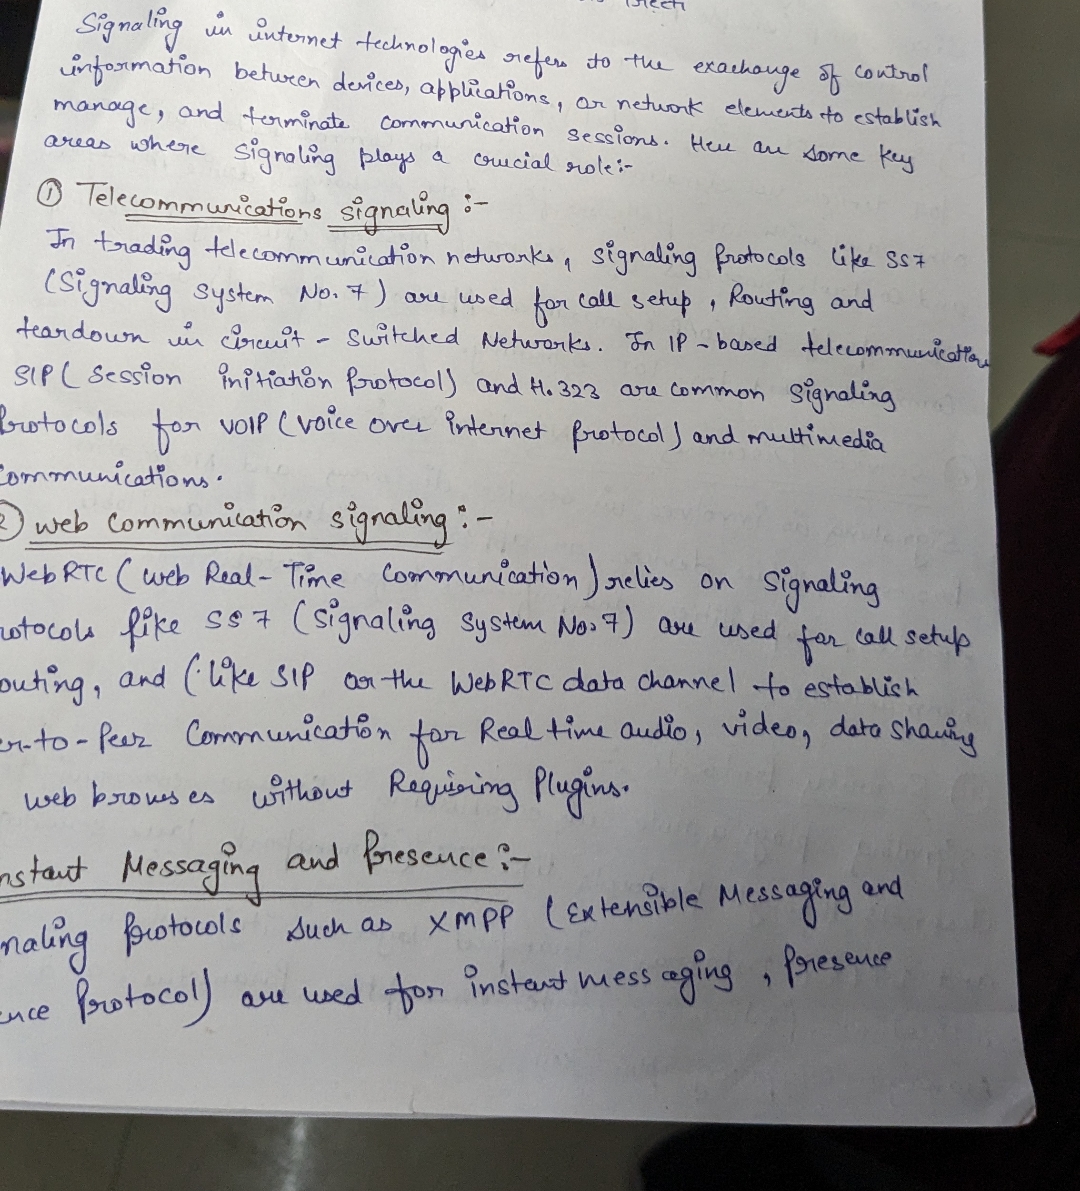 Signaling in internet technologies refers to the exachange of control
information between devices, applications, or network elements to establish
manage, and terminate communication sessions. Here are some key
areas where signaling plays a crucial role:-
① Telecommunications signaling :-
In trading telecommunication networks, signaling protocols like SS7
(Signaling System No. 7) are used for call setup, Routing and
teardown in circuit - switched Networks. In IP - based telecommunication
SIP ( Session initiation protocol) and H.323 are common signaling
protocols for VOIP (voice over internet protocol) and multimedia
communications.
② web communication signaling :-
Web RTC ( web Real - Time Communication ) relies on signaling
rotocols like SS7 (Signaling System No. 7) are used for call setup
outing, and (like SIP or the WebRTC data channel to establish
er-to-Peer Communication for Real time audio, video, data sharing
web browses without Requiring Plugins.
nstant Messaging and Presence :-
naling protocols such as XMPP (Extensible Messaging and
ence Protocol) are used for instant messaging, presence